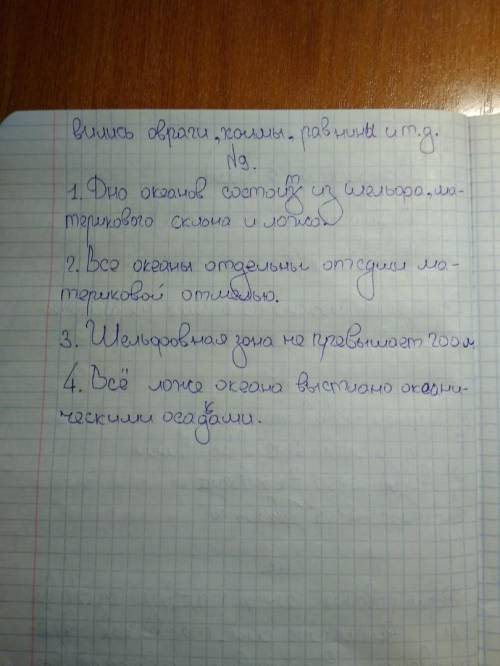 вились овраги, холмы, равнины и т.д.
№9.
1. Дно океанов состоит из шельфа, ма-
терикового склона и ложа.
2. Все океаны отдельны от суши ма-
териковой отмелью.
3. Шельфовная зона не превышает 200 м
4. Всё ложе океана выстлано океани-
ческими осадками.